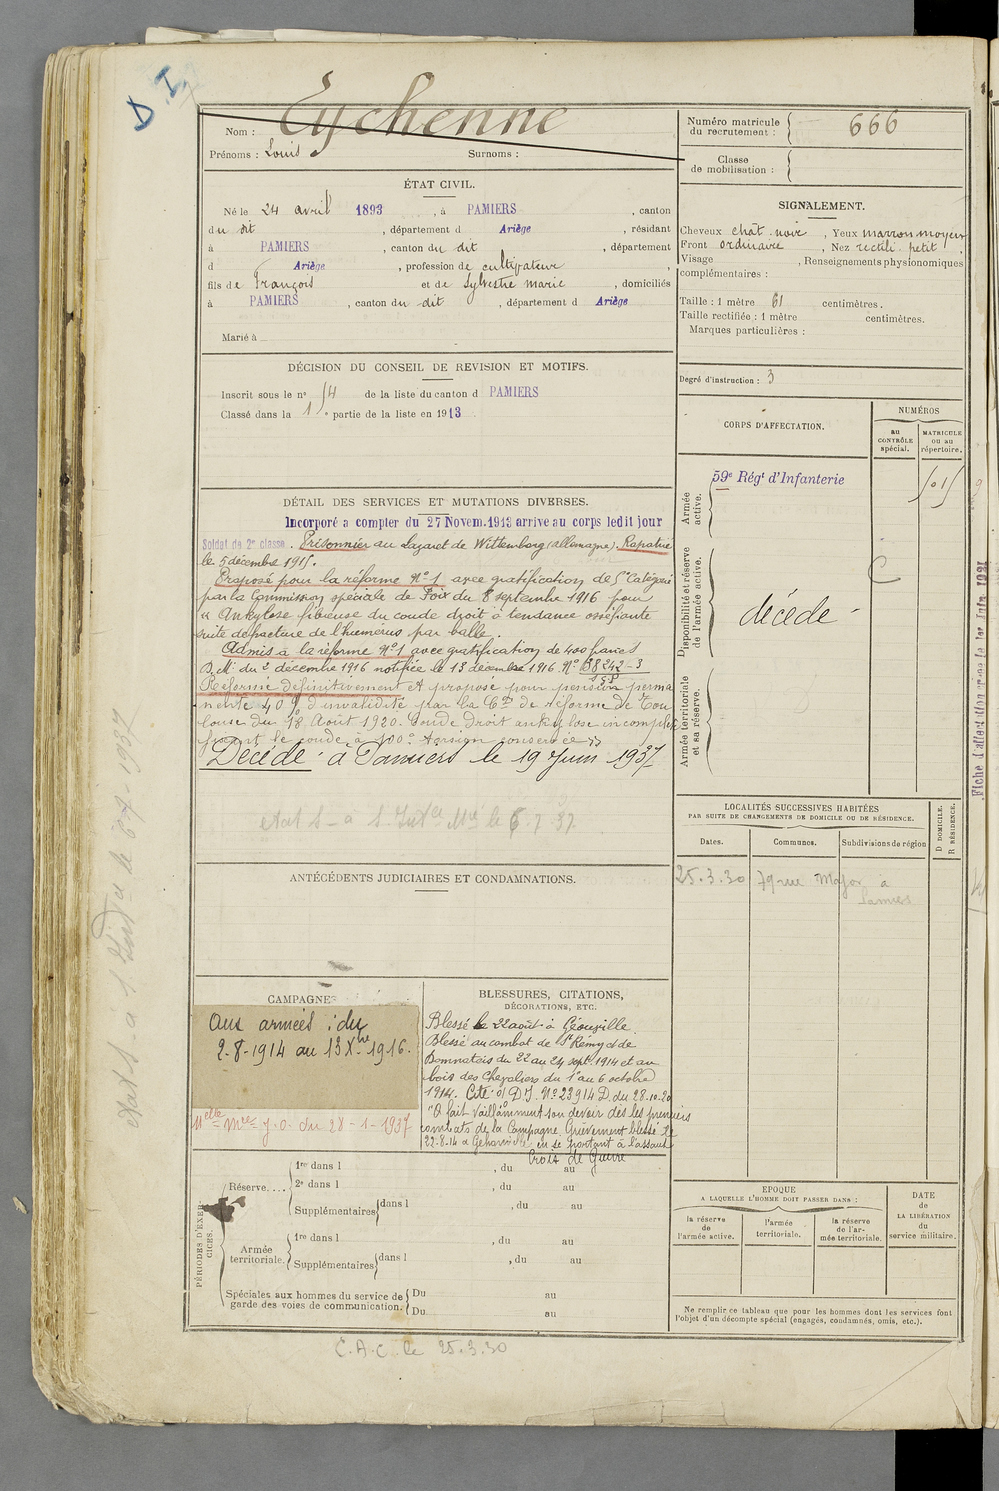 D I
Nom : Eychenne
Prénoms : Louis Surnoms :
Numéro matricule du recrutement : 666
Classe de mobilisation :
ÉTAT CIVIL.
Né le 24 avril 1893, à PAMIERS, canton
du dit, département d Ariège, résidant
à PAMIERS, canton du dit, département
d Ariège, profession de cultivateur,
fils de François et de Sylvestre Marie, domiciliés
à PAMIERS, canton du dit, département d Ariège
Marié à
SIGNALEMENT.
Cheveux chât. noir, Yeux marron moyen
Front ordinaire, Nez rectili. petit
Visage , Renseignements physionomiques
complémentaires :
Taille : 1 mètre 61 centimètres.
Taille rectifiée : 1 mètre centimètres.
Marques particulières :
Degré d'instruction : 3
DÉCISION DU CONSEIL DE REVISION ET MOTIFS.
Inscrit sous le n° 54 de la liste du canton d PAMIERS
Classé dans la 1re partie de la liste en 1913
DÉTAIL DES SERVICES ET MUTATIONS DIVERSES.
Incorporé a compter du 27 Novem. 1913 arrive au corps ledit jour
Soldat de 2e classe. Prisonnier au Lazaret de Wittemberg (allemagne). Rapatrié
le 5 décembre 1915.
Proposé pour la réforme N°1 avec gratification de 5e Catégorie
par la Commission spéciale de Foix du 8 septembre 1916 pour
« Ankylose fibreuse du coude droit à tendance osséfiante
suite de fracture de l'humérus par balle.
Admis à la réforme N°1 avec gratification de 400 francs
D. Mle du 2 décembre 1916 notifiée le 13 décembre 1916. N° 38242-3
Réformé définitivement et proposé pour pension perma
nente 40 % d'invalidité par la Con de réforme de Tou
louse du 18 Août 1920. Coude Droit ankylose incomplète
fixant le coude à 100° torsion conservée »
Décédé à Pamiers le 19 Juin 1937
etat S - a S. Intce Mre le 6.7.37
ANTÉCÉDENTS JUDICIAIRES ET CONDAMNATIONS.
CORPS D'AFFECTATION.
NUMÉROS
au CONTRÔLE spécial.
MATRICULE ou au répertoire.
Armée active.
59e Régt d'Infanterie
Disponibilité et réserve de l'armée active.
décédé
Armée territoriale et sa réserve.
LOCALITÉS SUCCESSIVES HABITÉES
PAR SUITE DE CHANGEMENTS DE DOMICILE OU DE RÉSIDENCE.
Dates. Communes. Subdivisions de région
D DOMICILE. R RÉSIDENCE.
25.3.30 79 rue Major à
Pamiers
CAMPAGNES
Aux armées : du
2-8-1914 au 13 Xbre 1916.
Melle Mre J.O. du 28-1-1937
BLESSURES, CITATIONS,
DÉCORATIONS, ETC.
Blessé le 22 août à Géouville
Blessé au combat de St Rémy et de
Domnatris du 22 au 24 sept. 1914 et au
bois des Chevaliers du 1 au 6 octobre
1914. Cité O/ D.I. N° 23914 D du 28-10-20
"A fait vaillamment son devoir dès les premiers
combats de la Campagne. Grièvement blessé le
22-8-14 a Gehonville en se portant à l'assaut
Croix de Guerre
PÉRIODES D'EXERCICES.
Réserve....
1re dans l , du au
2e dans l , du au
Supplémentaires dans l , du au
Armée territoriale.
1re dans l , du au
Supplémentaires dans l , du au
Spéciales aux hommes du service de garde des voies de communication.
Du au
Du au
EPOQUE
A LAQUELLE L'HOMME DOIT PASSER DANS :
la réserve de l'armée active.
l'armée territoriale.
la réserve de l'armée territoriale.
DATE de LA LIBÉRATION du service militaire.
Ne remplir ce tableau que pour les hommes dont les services font
l'objet d'un décompte spécial (engagés, condamnés, omis, etc.).
E.A.C. le 25.3.30